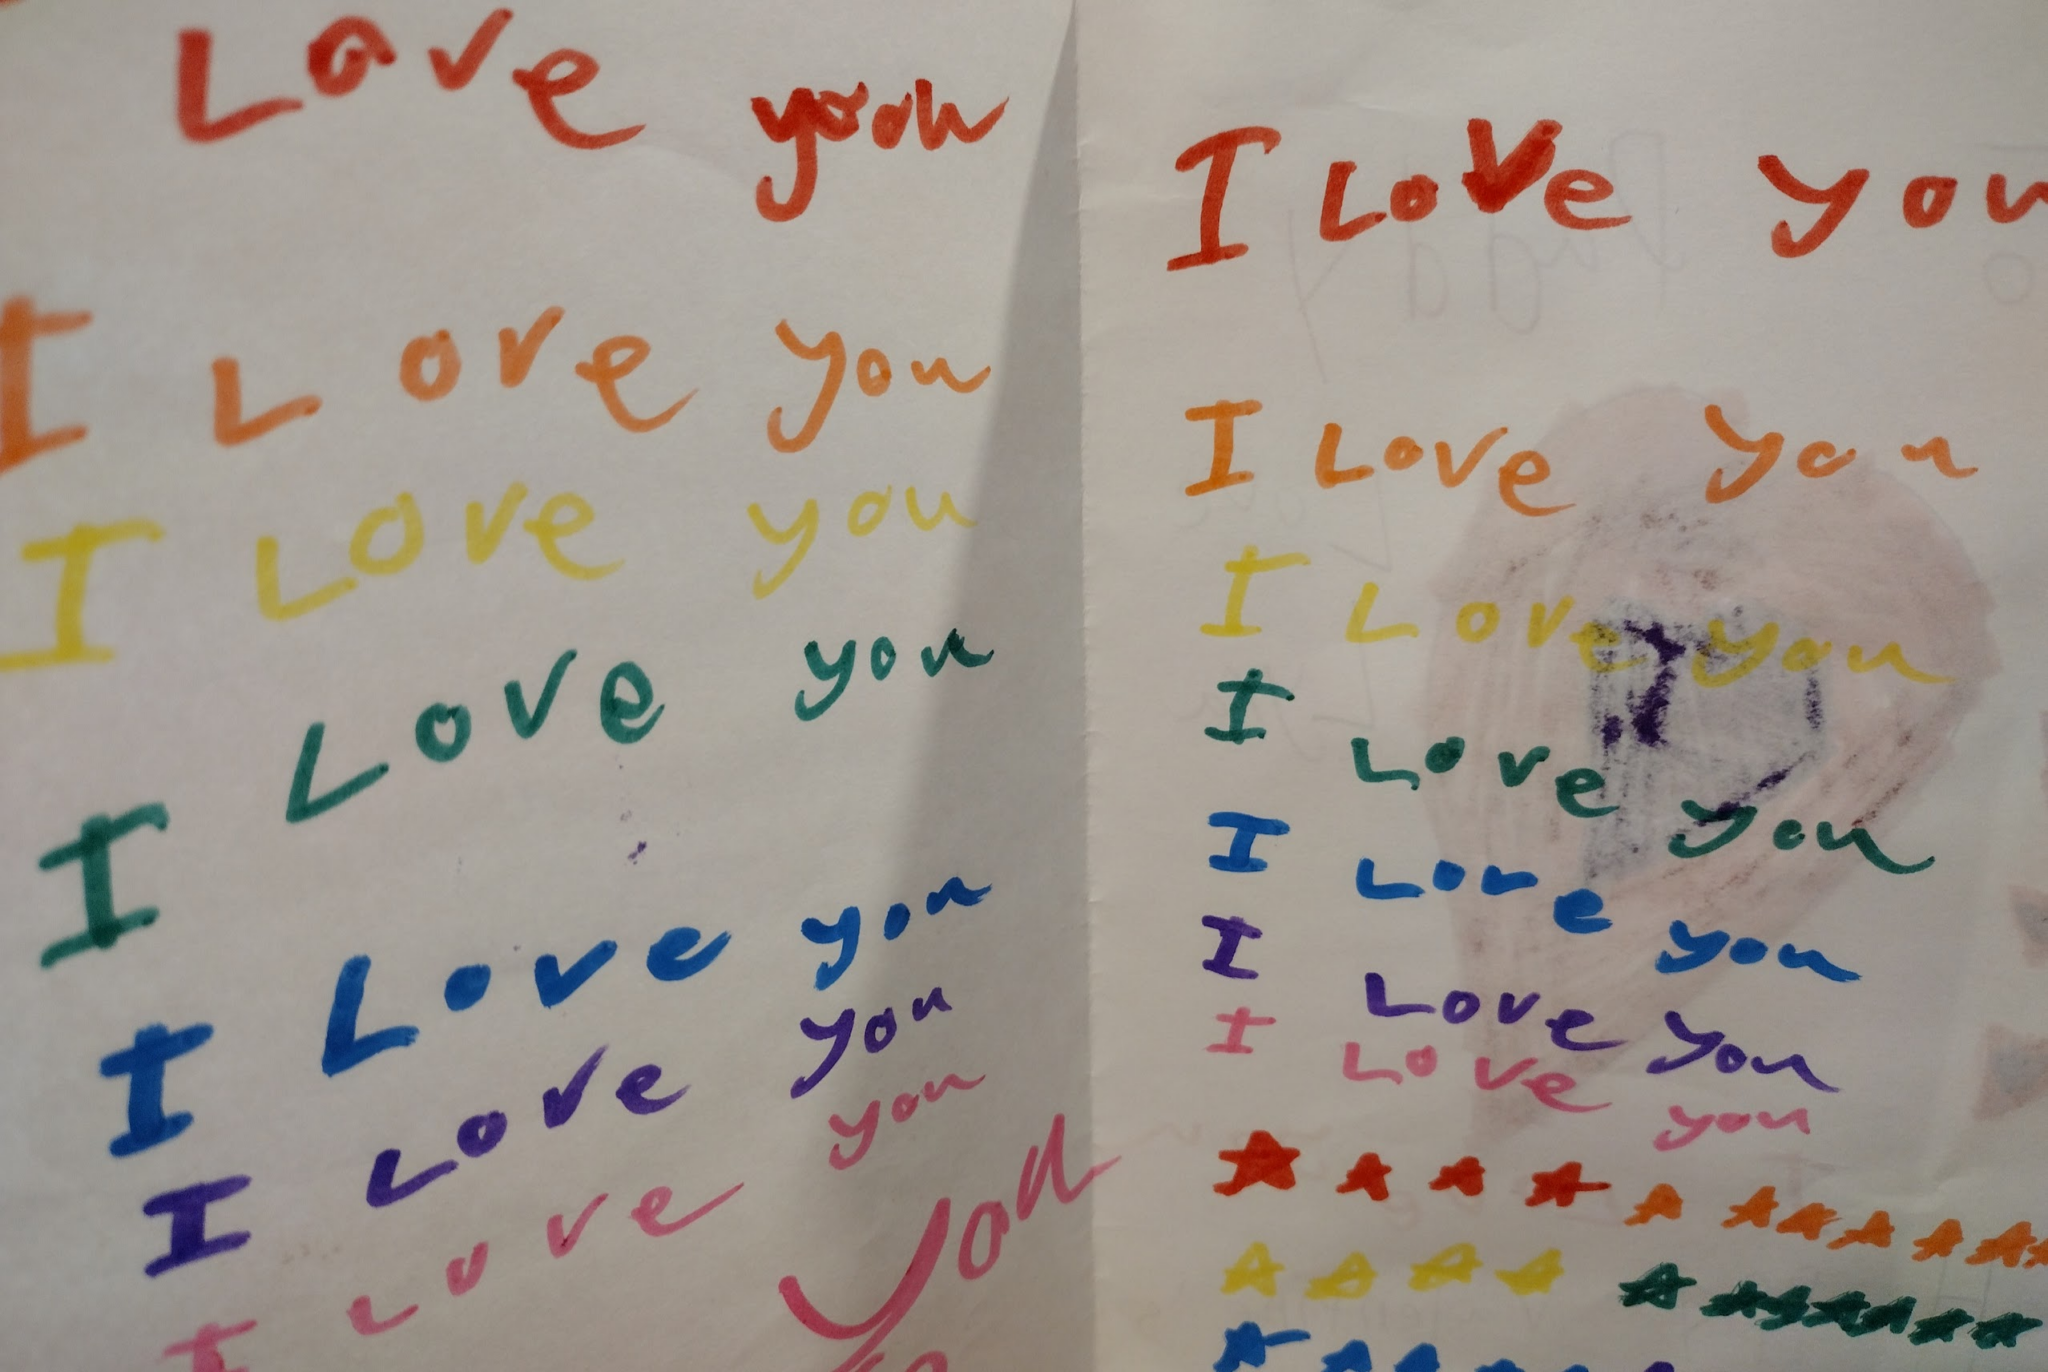 Love you
I Love you
I Love you
I Love you
I Love you
I Love you
I Love you
you
I Love you
I Love you
I Love you
I Love you
I Love you
I Love you
I Love you